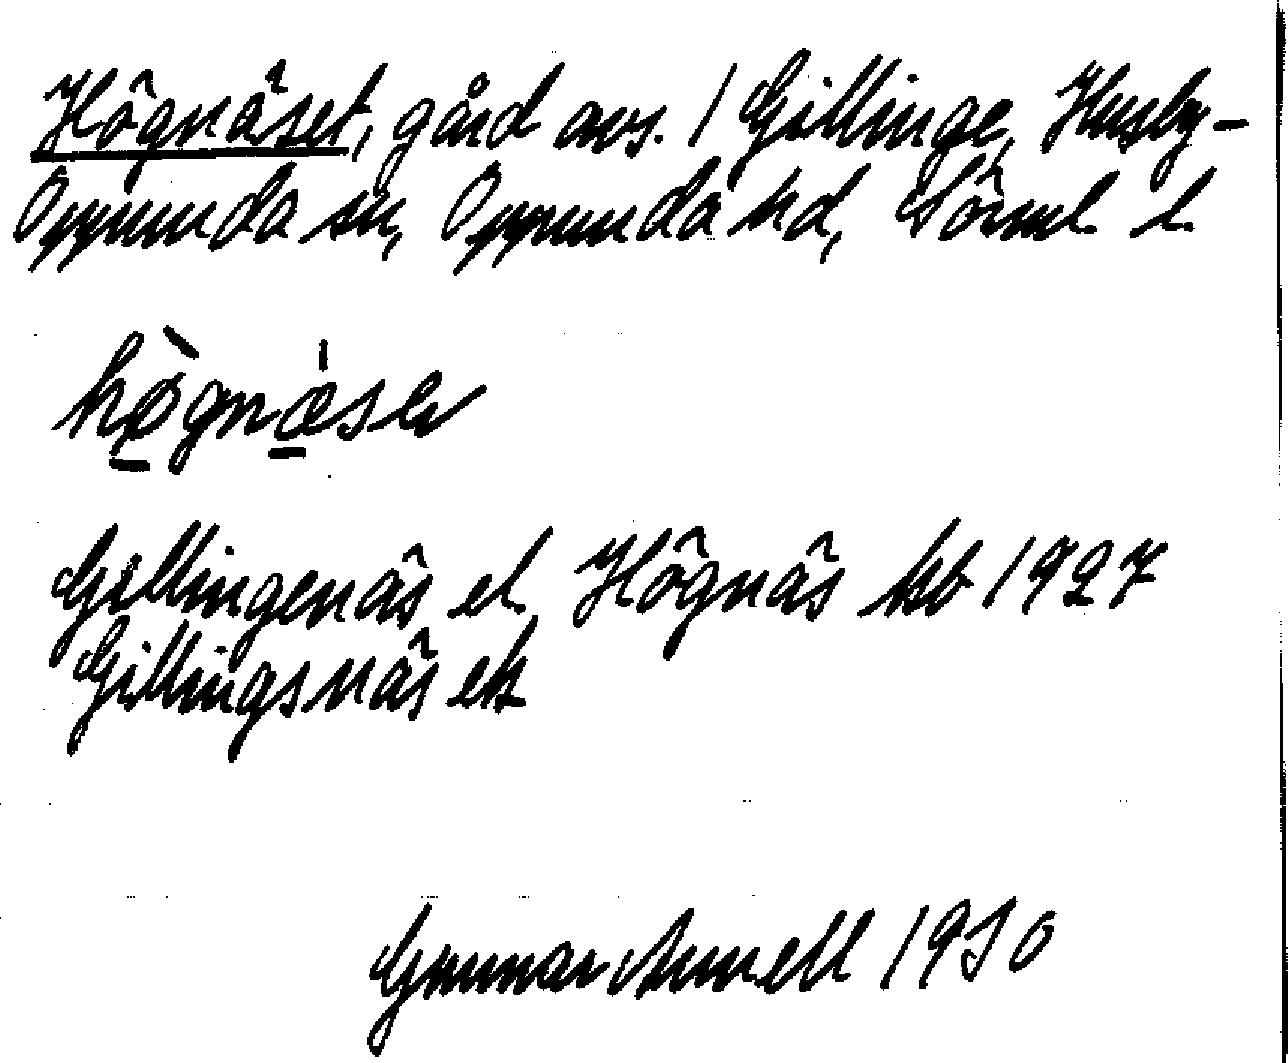 Högnäset, gård avs. / Gillinge, Husby-
Oppunda sn, Oppunda hd, Sörml. l.
hø̀gnæ̍sə
Gillingenäs el. Högnäs kb 1927
Gillingsnäs ek
Gunnar 1930